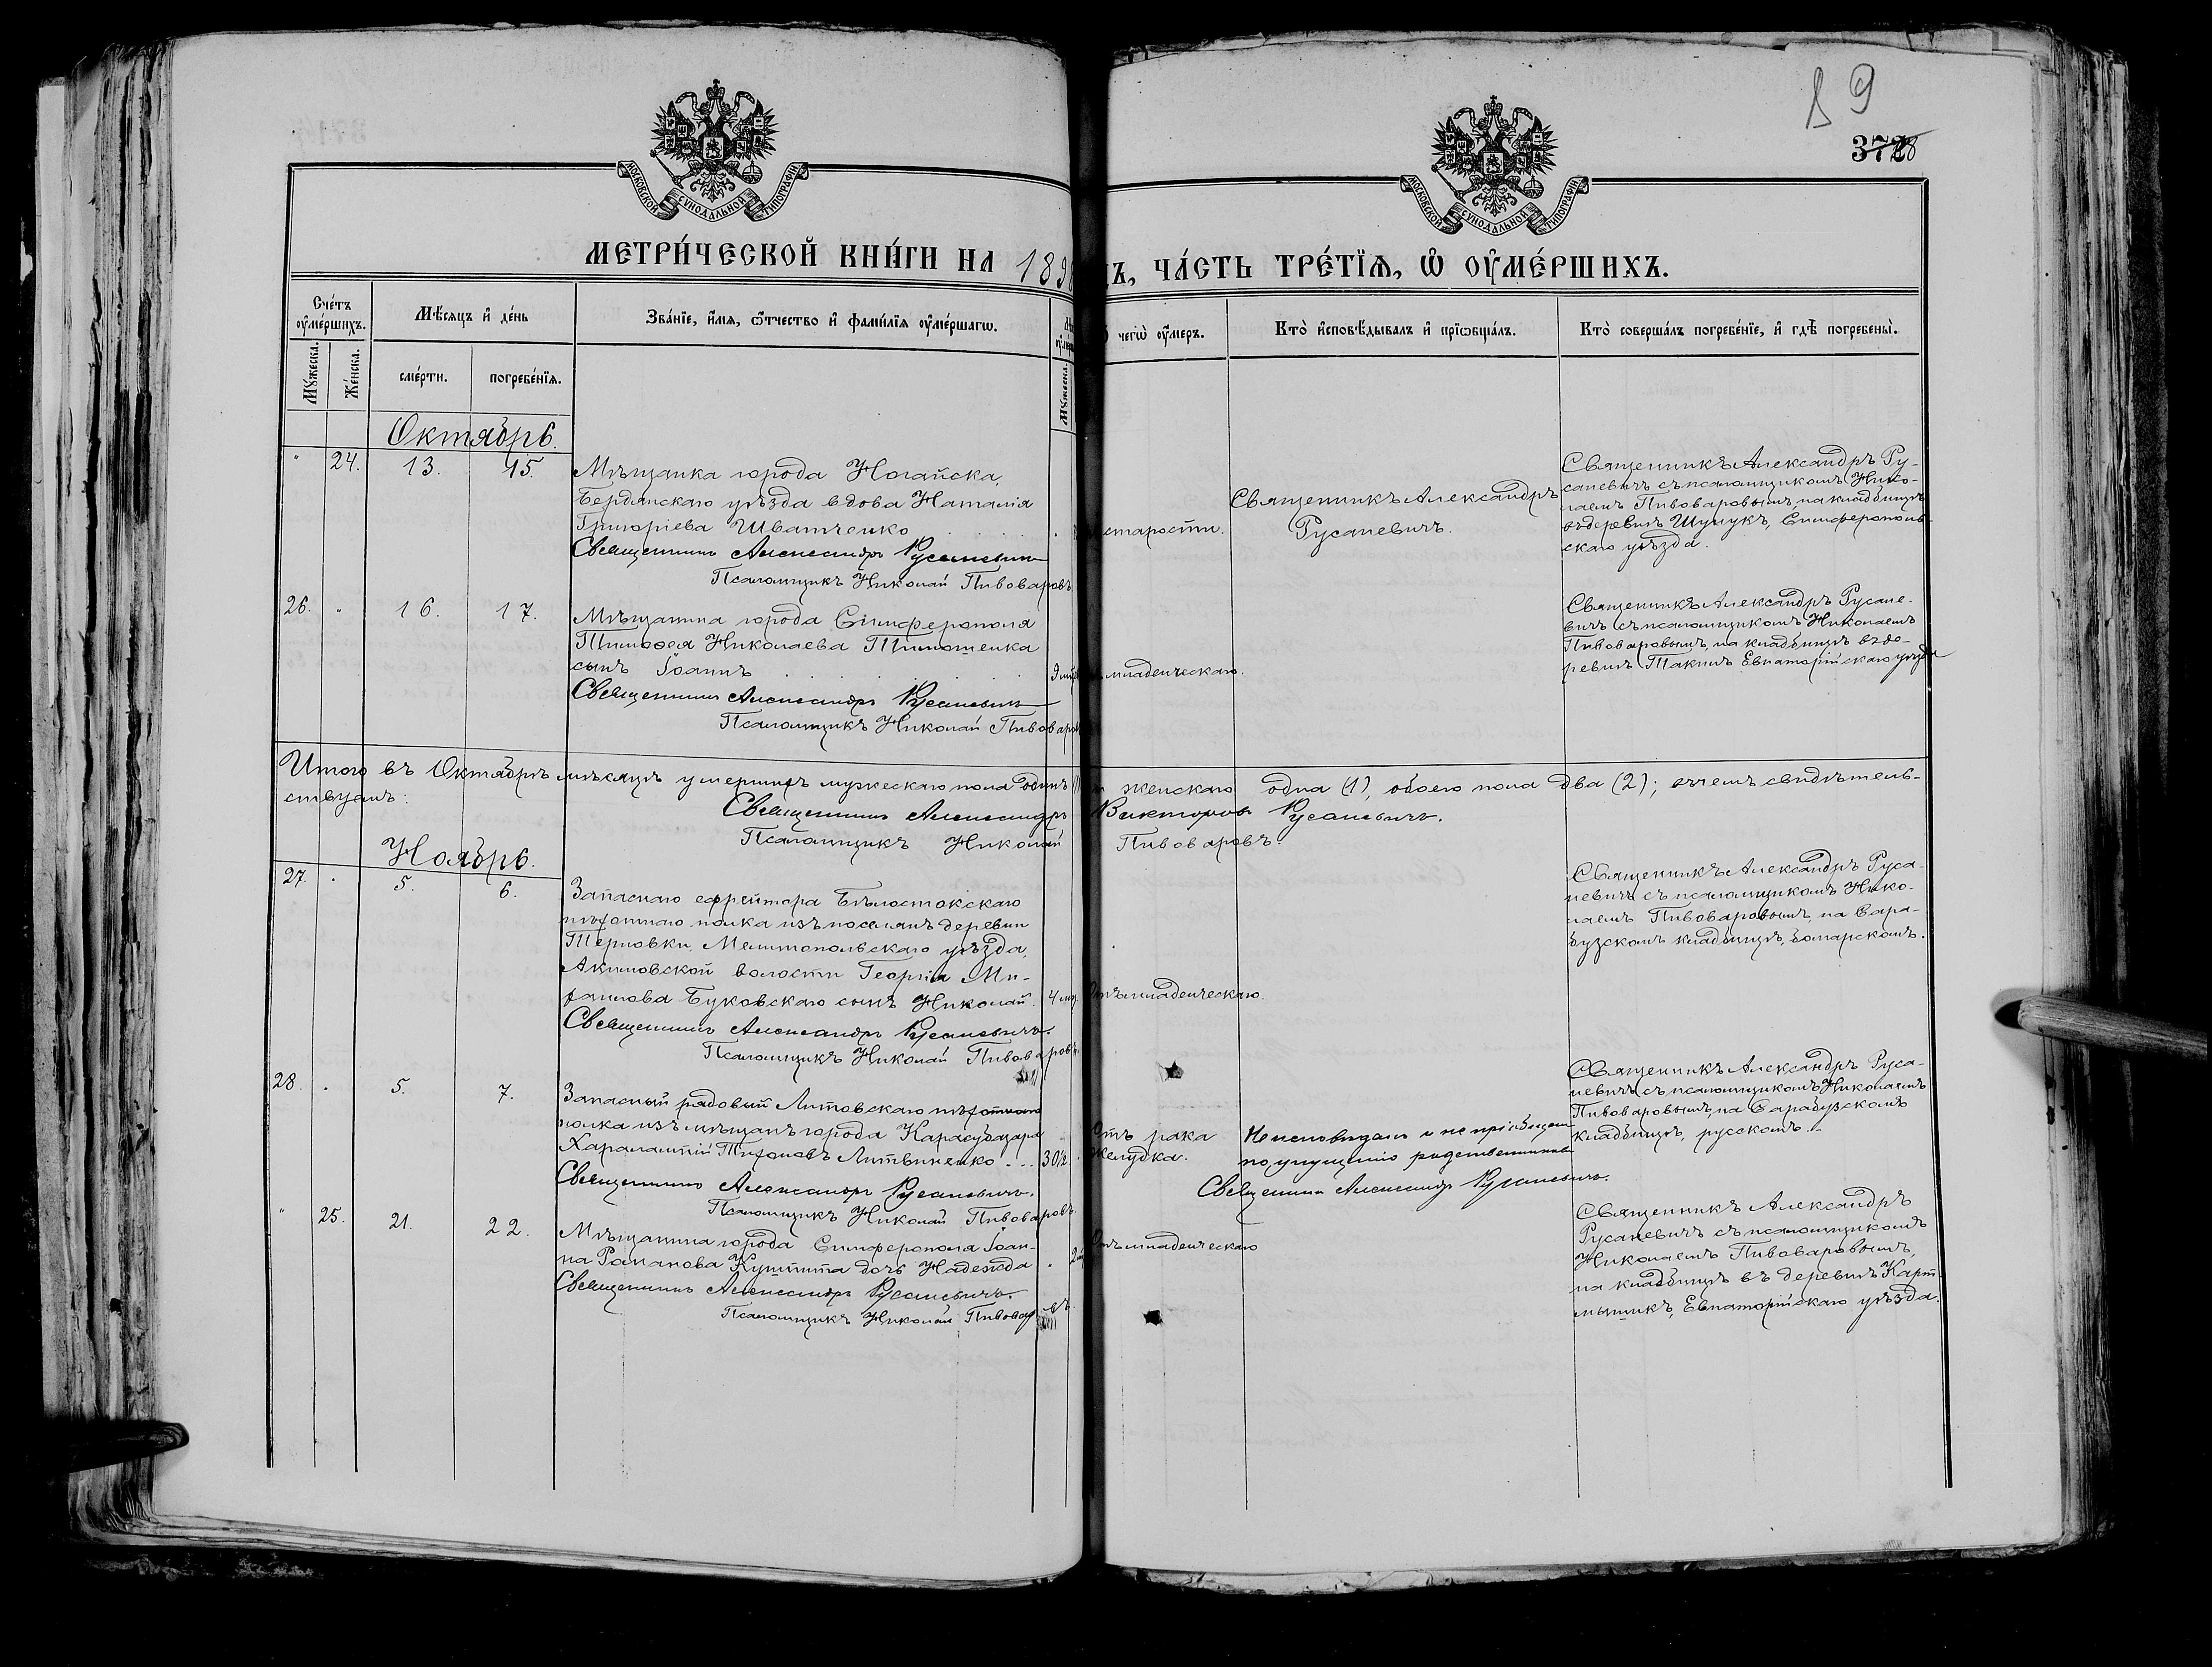 89
372
МОСКОВСКОЙ СУНОДАЛЬНОЙ ТИПОГРАФІИ
МОСКОВСКОЙ СУНОДАЛЬНОЙ ТИПОГРАФІИ
МЕТРИ́ЧЕСКОЙ КНИ́ГИ НА 189
ЧА́СТЬ ТРЕ́ТЇѦ, Ѽ ОУ҆МЕ́РШИХЪ.
Сче́тъ оу҆ме́ршихъ.
Мꙋ́жеска.
Же́нска.
Мѣ́сяцъ и҆ де́нь
сме́рти.
погребе́нїѧ.
Зва́нїе, и҆́мѧ, ѻ҆́тчество и҆ фами́лїѧ оу҆ме́ршагѡ.
Мꙋ́жеска.
чегѡ̀ оу҆́меръ.
Кто̀ и҆сповѣ́дывалъ и҆ прїѡбща́лъ.
Кто̀ соверша́лъ погребе́нїе, и҆ гдѣ̀ погребены̀.
Октябрь.
" 24. 13. 15.
Мѣщанка города Ногайска,
Бердянскаго уѣзда вдова Наталія
Григоріева Шватченко
Священникъ Александръ Русаневичъ
Псаломщикъ Николай Пивоваровъ
старости.
Священникъ Александръ
Русаневичъ.
Священникъ Александръ Ру-
саневичъ съ псаломщикомъ Нико-
лаемъ Пивоваровымъ, на кладбищѣ
въ деревнѣ Шунукъ, Симферополь-
скаго уѣзда.
26. " 16. 17.
Мѣщанина города Симферополя
Тимоѳея Николаева Тимошенка
сынъ Іоаннъ
Священникъ Александръ Русаневичъ
Псаломщикъ Николай Пивоваров
младенческаго.
Священникъ Александръ Русане-
вичъ съ псаломщикомъ Николаемъ
Пивоваровымъ, на кладбищѣ въ де-
ревнѣ Такилъ Евпаторійскаго уѣзда
Итого въ Октябрѣ мѣсяцѣ умершихъ мужескаго пола одинъ (1)
женскаго одна (1), обоего пола два (2); въ чемъ свидѣтель-
ствуемъ:
Священникъ Александръ Викторовъ Русаневичъ.
Псаломщикъ Николай Пивоваровъ.
Ноябрь.
27. " 5. 6.
Запаснаго ефрейтора Бѣлостокскаго
пѣхотнаго полка изъ поселянъ деревни
Терновки Мелитопольскаго уѣзда,
Акимовской волости Георгія Ми-
хаилова Буковскаго сынъ Николай. 4 мѣс.
Священникъ Александръ Русаневичъ.
Псаломщикъ Николай Пивоваровъ.
Отъ младенческаго.
Священникъ Александръ Руса-
невичъ съ псаломщикомъ Нико-
лаемъ Пивоваровымъ, на Сара-
бузскомъ кладбищѣ, болгарскомъ.
28. " 5. 7.
Запасный рядовый Литовскаго пѣхотнаго
полка изъ мѣщанъ города Карасубазара
Харалампій Тихоновъ Литвиненко
Священникъ Александръ Русаневичъ.
Псаломщикъ Николай Пивоваровъ.
Отъ рака
желудка.
Не исповѣданъ и не пріобщенъ
по упущенію родственниковъ
Священникъ Александръ Русаневичъ.
Священникъ Александръ Руса-
невичъ съ псаломщикомъ Николаемъ
Пивоваровымъ, на Сарабузскомъ
кладбищѣ, русскомъ.
" 25. 21. 22.
Мѣщанина города Симферополя Іоан-
на Романова Куштита дочь Надежда
Священникъ Александръ Русаневичъ.
Псаломщикъ Николай Пивоваровъ
Отъ младенческаго
Священникъ Александръ
Русаневичъ съ псаломщикомъ
Николаемъ Пивоваровымъ,
на кладбищѣ въ деревнѣ Карт-
мышикъ, Евпаторійскаго уѣзда.